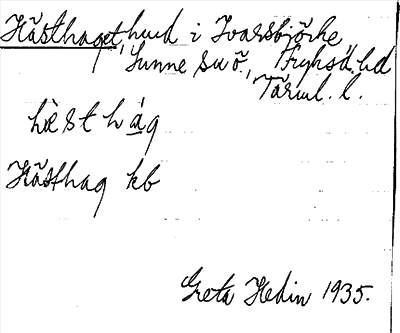 Hästhaget, hmd i Ivarsbjörke
Sunne sn ö., Fryksd. hd
Värml. l.
hèst hág
Hästhag kb
Greta Hedin 1935.